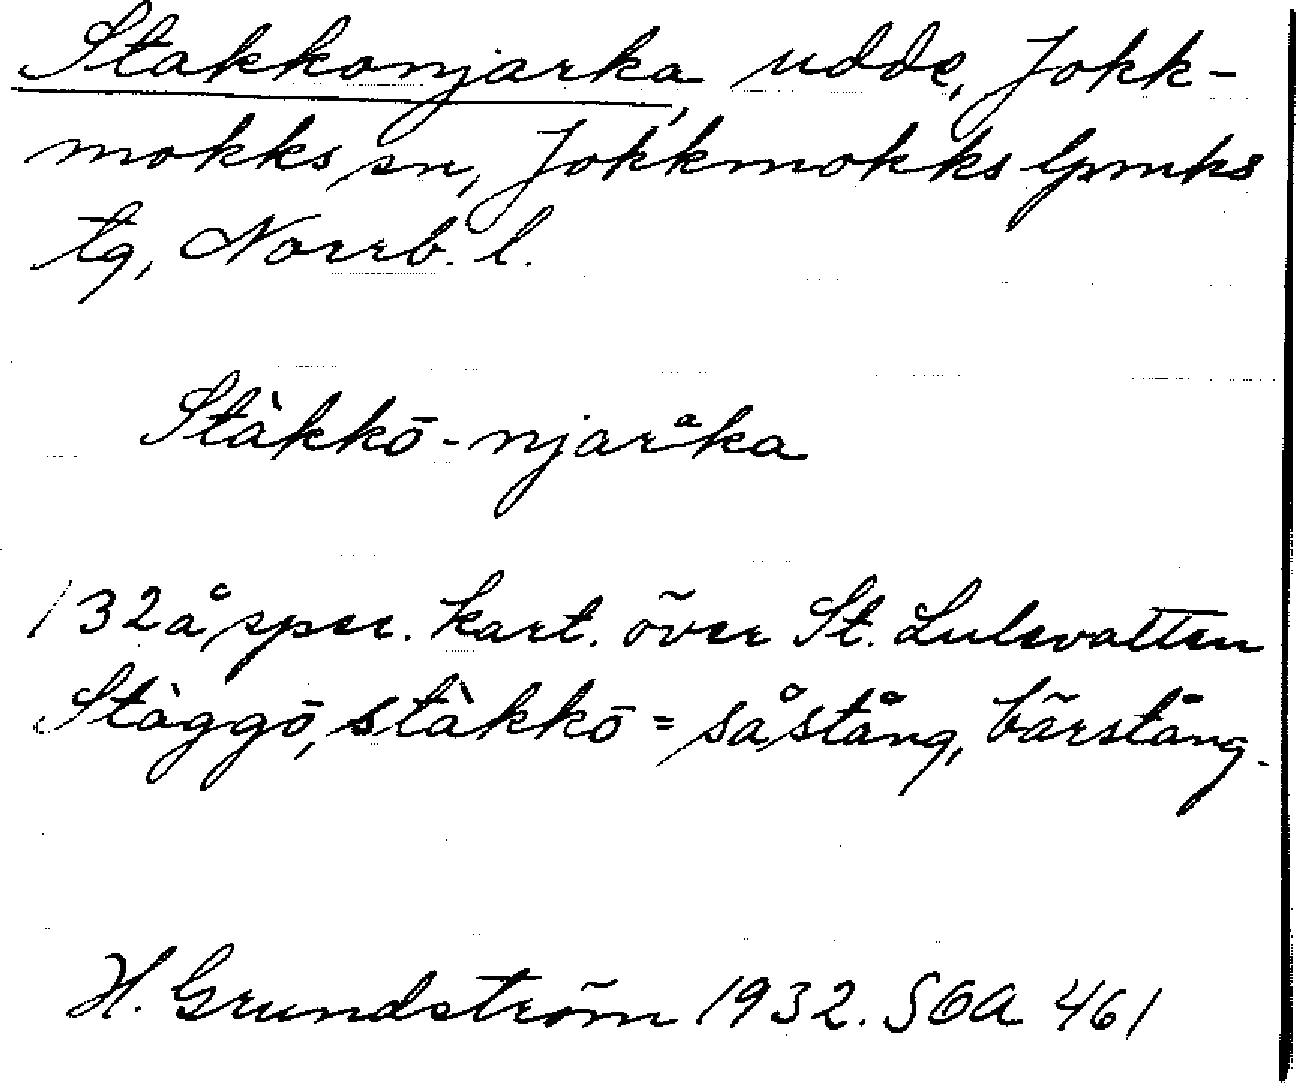 Stakkonjarka, udde, Jokk-
mokks sn, Jokkmokks lpmks
tg, Norrb. l.
Stàkkō-njarᵃka
132 å spec. kart. över St. Lulevatten
Stàggō, stàkkō = såstång, bärstång.
H. Grundström 1932. SOA 461